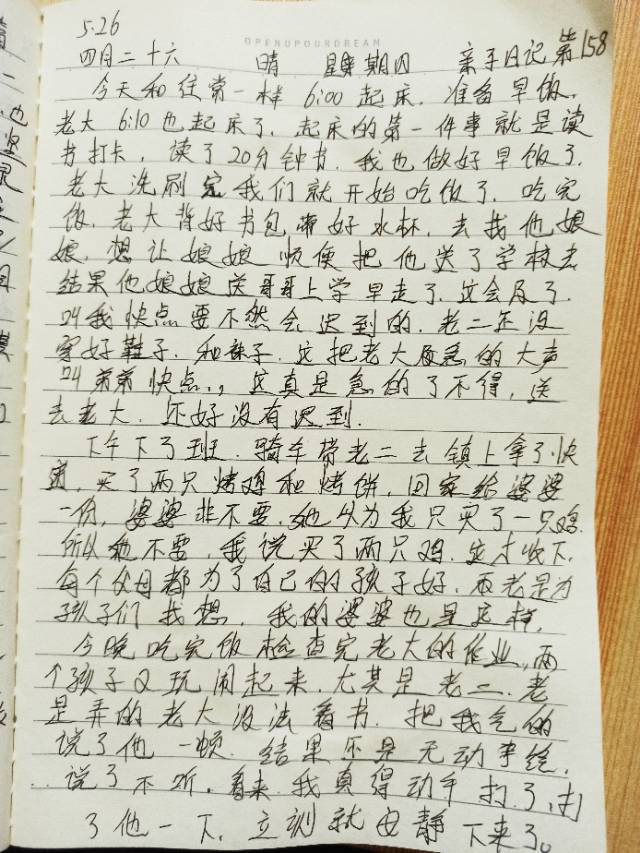 5.26
OPENUPOURDREAM
四月二十六 晴 星期四 亲子日记 第158
今天和往常一样 6:00 起床. 准备早饭.
老大 6:10 也起床了. 起床的第一件事就是读
书打卡, 读了20分钟书. 我也做好早饭了.
老大洗刷完我们就开始吃饭了. 吃完
饭. 老大背好书包带好水杯. 去找他娘
娘. 想让娘娘顺便把他送了学校去
结果他娘娘送哥哥上学早走了. 这会急了.
叫我快点要不然会迟到的. 老二还没
穿好鞋子. 和袜子. 这把老大着急的大声
叫弟弟快点., 这真是急的了不得, 送
去老大. 还好没有迟到.
下午下了班. 骑车带老二去镇上拿了快
递, 买了两只烤鸡和烤饼, 回家给婆婆
一份, 婆婆非不要. 她以为我只买了一只鸡.
所以她不要, 我说买了两只鸡. 这才收下.
每个父母都为了自己的孩子好. 都是为
孩子们找想. 我的婆婆也是这样,
今晚吃完饭检查完老大的作业, 两
个孩子又玩闹起来. 尤其是老二. 老
是弄的老大没法看书. 把我气的
说了他一顿. 结果还是无动事终,
说了不听. 看来我真得动手打了, 打
了他一下, 立刻就安静下来了。